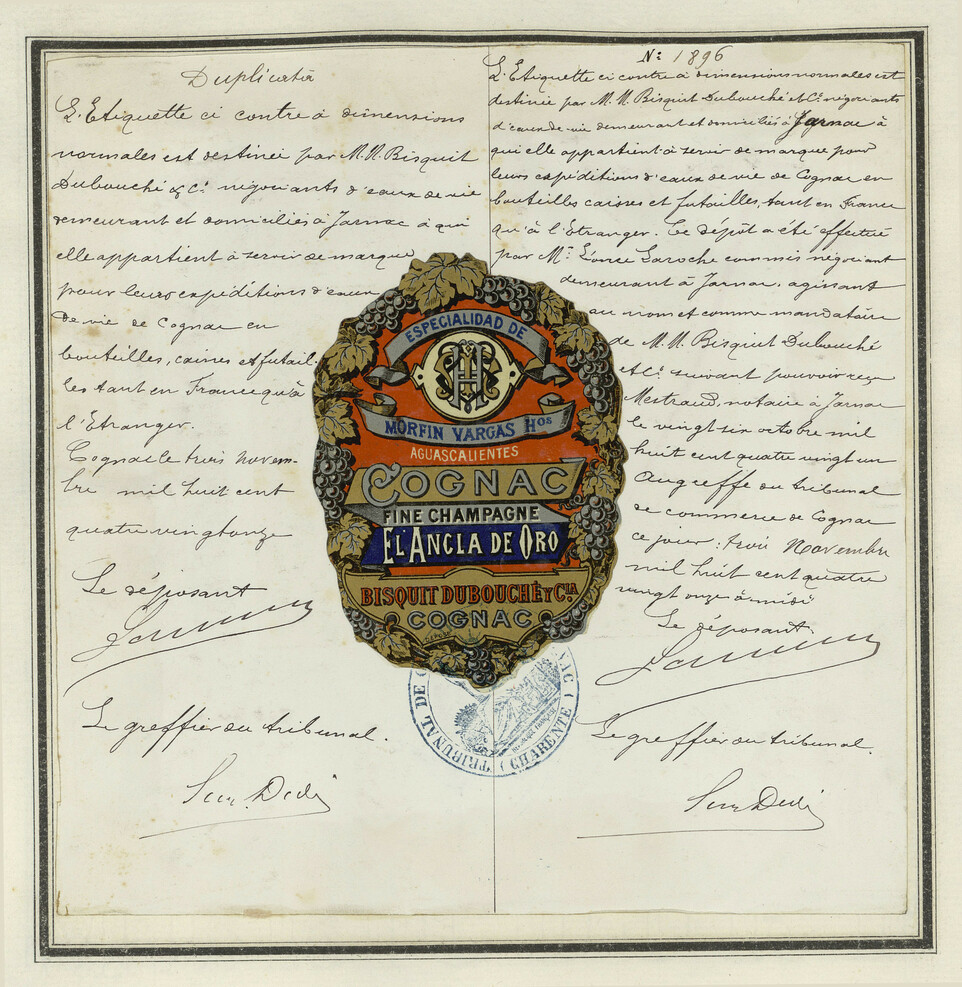 Duplicata
L'Etiquette ci contre à dimensions
normales est destinée par M.M. Bisquit
Dubouché & Cie négociants d'eaux de vie
demeurant et domiciliés à Jarnac à qui
elle appartient à servir de marque
pour leurs expéditions d'eaux
de vie de Cognac en
bouteilles, caisses et futail-
les tant en France qu'à
l'Etranger.
Cognac le trois novem-
bre mil huit cent
quatre vingt onze
Le déposant
Le greffier du tribunal.
N° 1896
L'Etiquette ci contre à dimensions normales est
destinée par M.M. Bisquit Dubouché et Cie négociants
d'eaux de vie demeurant et domiciliés à Jarnac à
qui elle appartient à servir de marque pour
leurs expéditions d'eaux de vie de Cognac en
bouteilles caisses et futailles, tant en France
qu'à l'Etranger. Ce dépôt a été effectué
par Mr Léonce Laroche commis négociant
demeurant à Jarnac, agissant
au nom et comme mandataire
de M.M. Bisquit Dubouché
et Cie suivant pouvoir reçu
Mestraud, notaire à Jarnac
le vingt six octobre mil
huit cent quatre vingt un
Au greffe du tribunal
de commerce de Cognac
ce jour : trois Novembre
mil huit cent quatre
vingt onze à midi
Le déposant
Le greffier du tribunal.
ESPECIALIDAD DE
MORFIN VARGAS Hos
AGUASCALIENTES
COGNAC
FINE CHAMPAGNE
EL ANCLA DE ORO
BISQUIT DUBOUCHÉ Y CIA
COGNAC
TRIBUNAL DE C
NAC (CHARENTE)